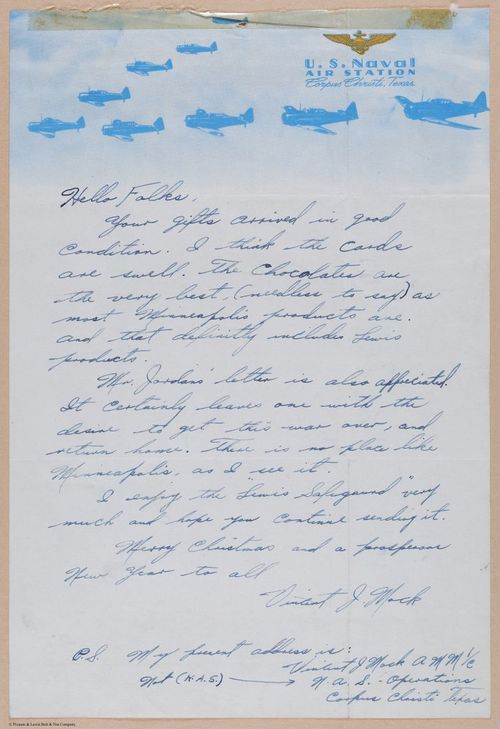 U.S. Naval
AIR STATION
Corpus Christi, Texas
Hello Folks,
Your gifts arrived in good
condition. I think the cards
are swell. The chocolates are
the very best, (needless to say) as
most Minneapolis products are.
and that definitly includes Lewis
products.
Mr. Jordans' letter is also appreciated.
It certainly leaves one with the
desire to get this war over, and
return home. There is no place like
Minneapolis, as I "see it.
I enjoy the "Lewis Safeguard" very
much and hope you continue sending it.
Merry Christmas and a prosperous
New Year to all
Vincent J. Mock
P.S. My present address is:
Vincent J Mock A M M 1/c
Not (H.A.S.) → N. A. S. - Operations
Corpus Christi Texas